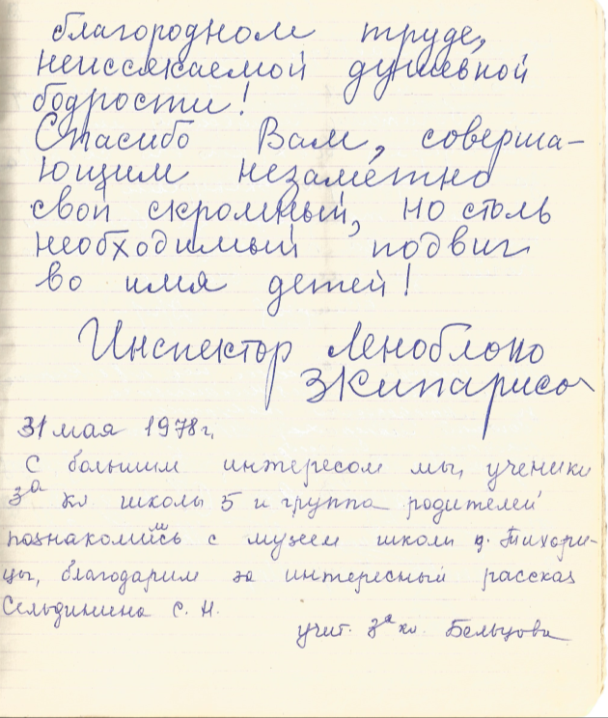 благородном труде,
неиссякаемой душевной
бодрости!
Спасибо Вам, соверша-
ющим незаметно
свой скромный, но столь
необходимый подвиг
во имя детей!
Инспектор Леноблоно
31 мая 1978 г.
С большим интересом мы, ученики
3а кл школы 5 и группа родителей
познакомились с музеем школы д. Тихори-
цы, благодарим за интересный рассказ
С. Н.
учит. 3а кл. Бельцова